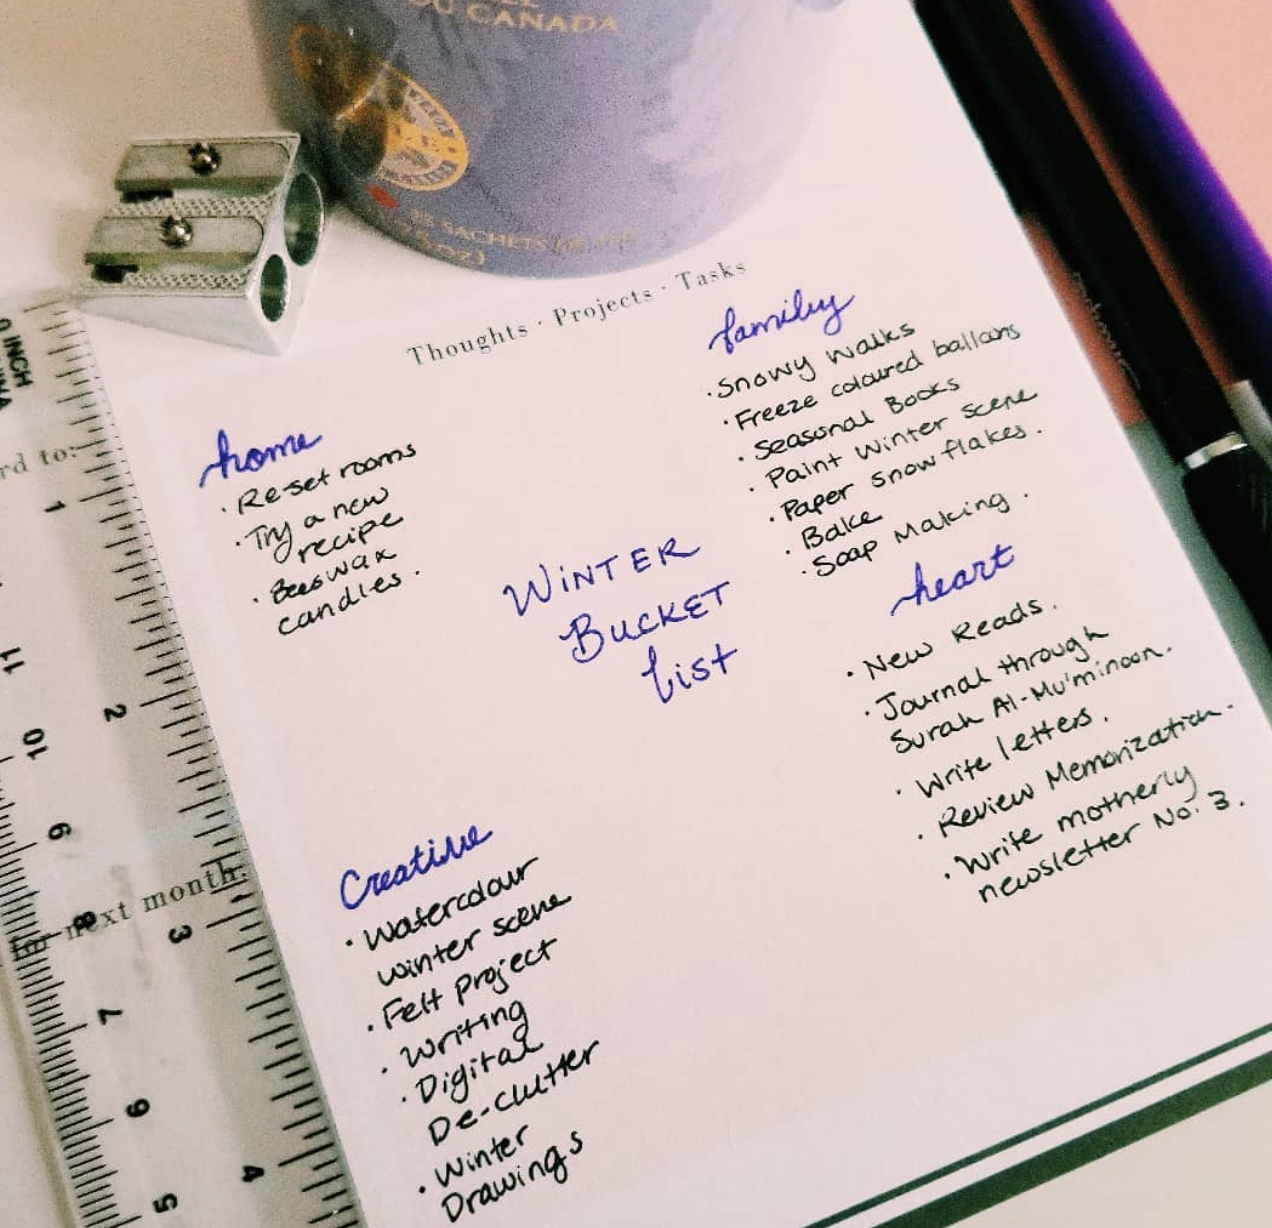 DU CANADA
25 SACHETS
Thoughts · Projects · Tasks
family
· Snowy walks
· Freeze coloured balloons
· Seasonal Books
· Paint Winter Scene
· Paper snowflakes.
· Bake
· Soap Making.
home
· Re-set rooms
· Try a new
recipe
· Beeswax
candles.
WINTER
BUCKET
List
heart
· New Reads.
· Journal through
Surah Al-Mu'minoon.
· Write letters.
· Review Memorization.
· Write motherly
newsletter No. 3.
Creative
· Watercolour
winter scene
· Felt Project
· Writing
· Digital
De-clutter
· Winter
Drawings
0 INCH
rd to:
1
2
3
4
11
10
9
8
7
6
5
next month: